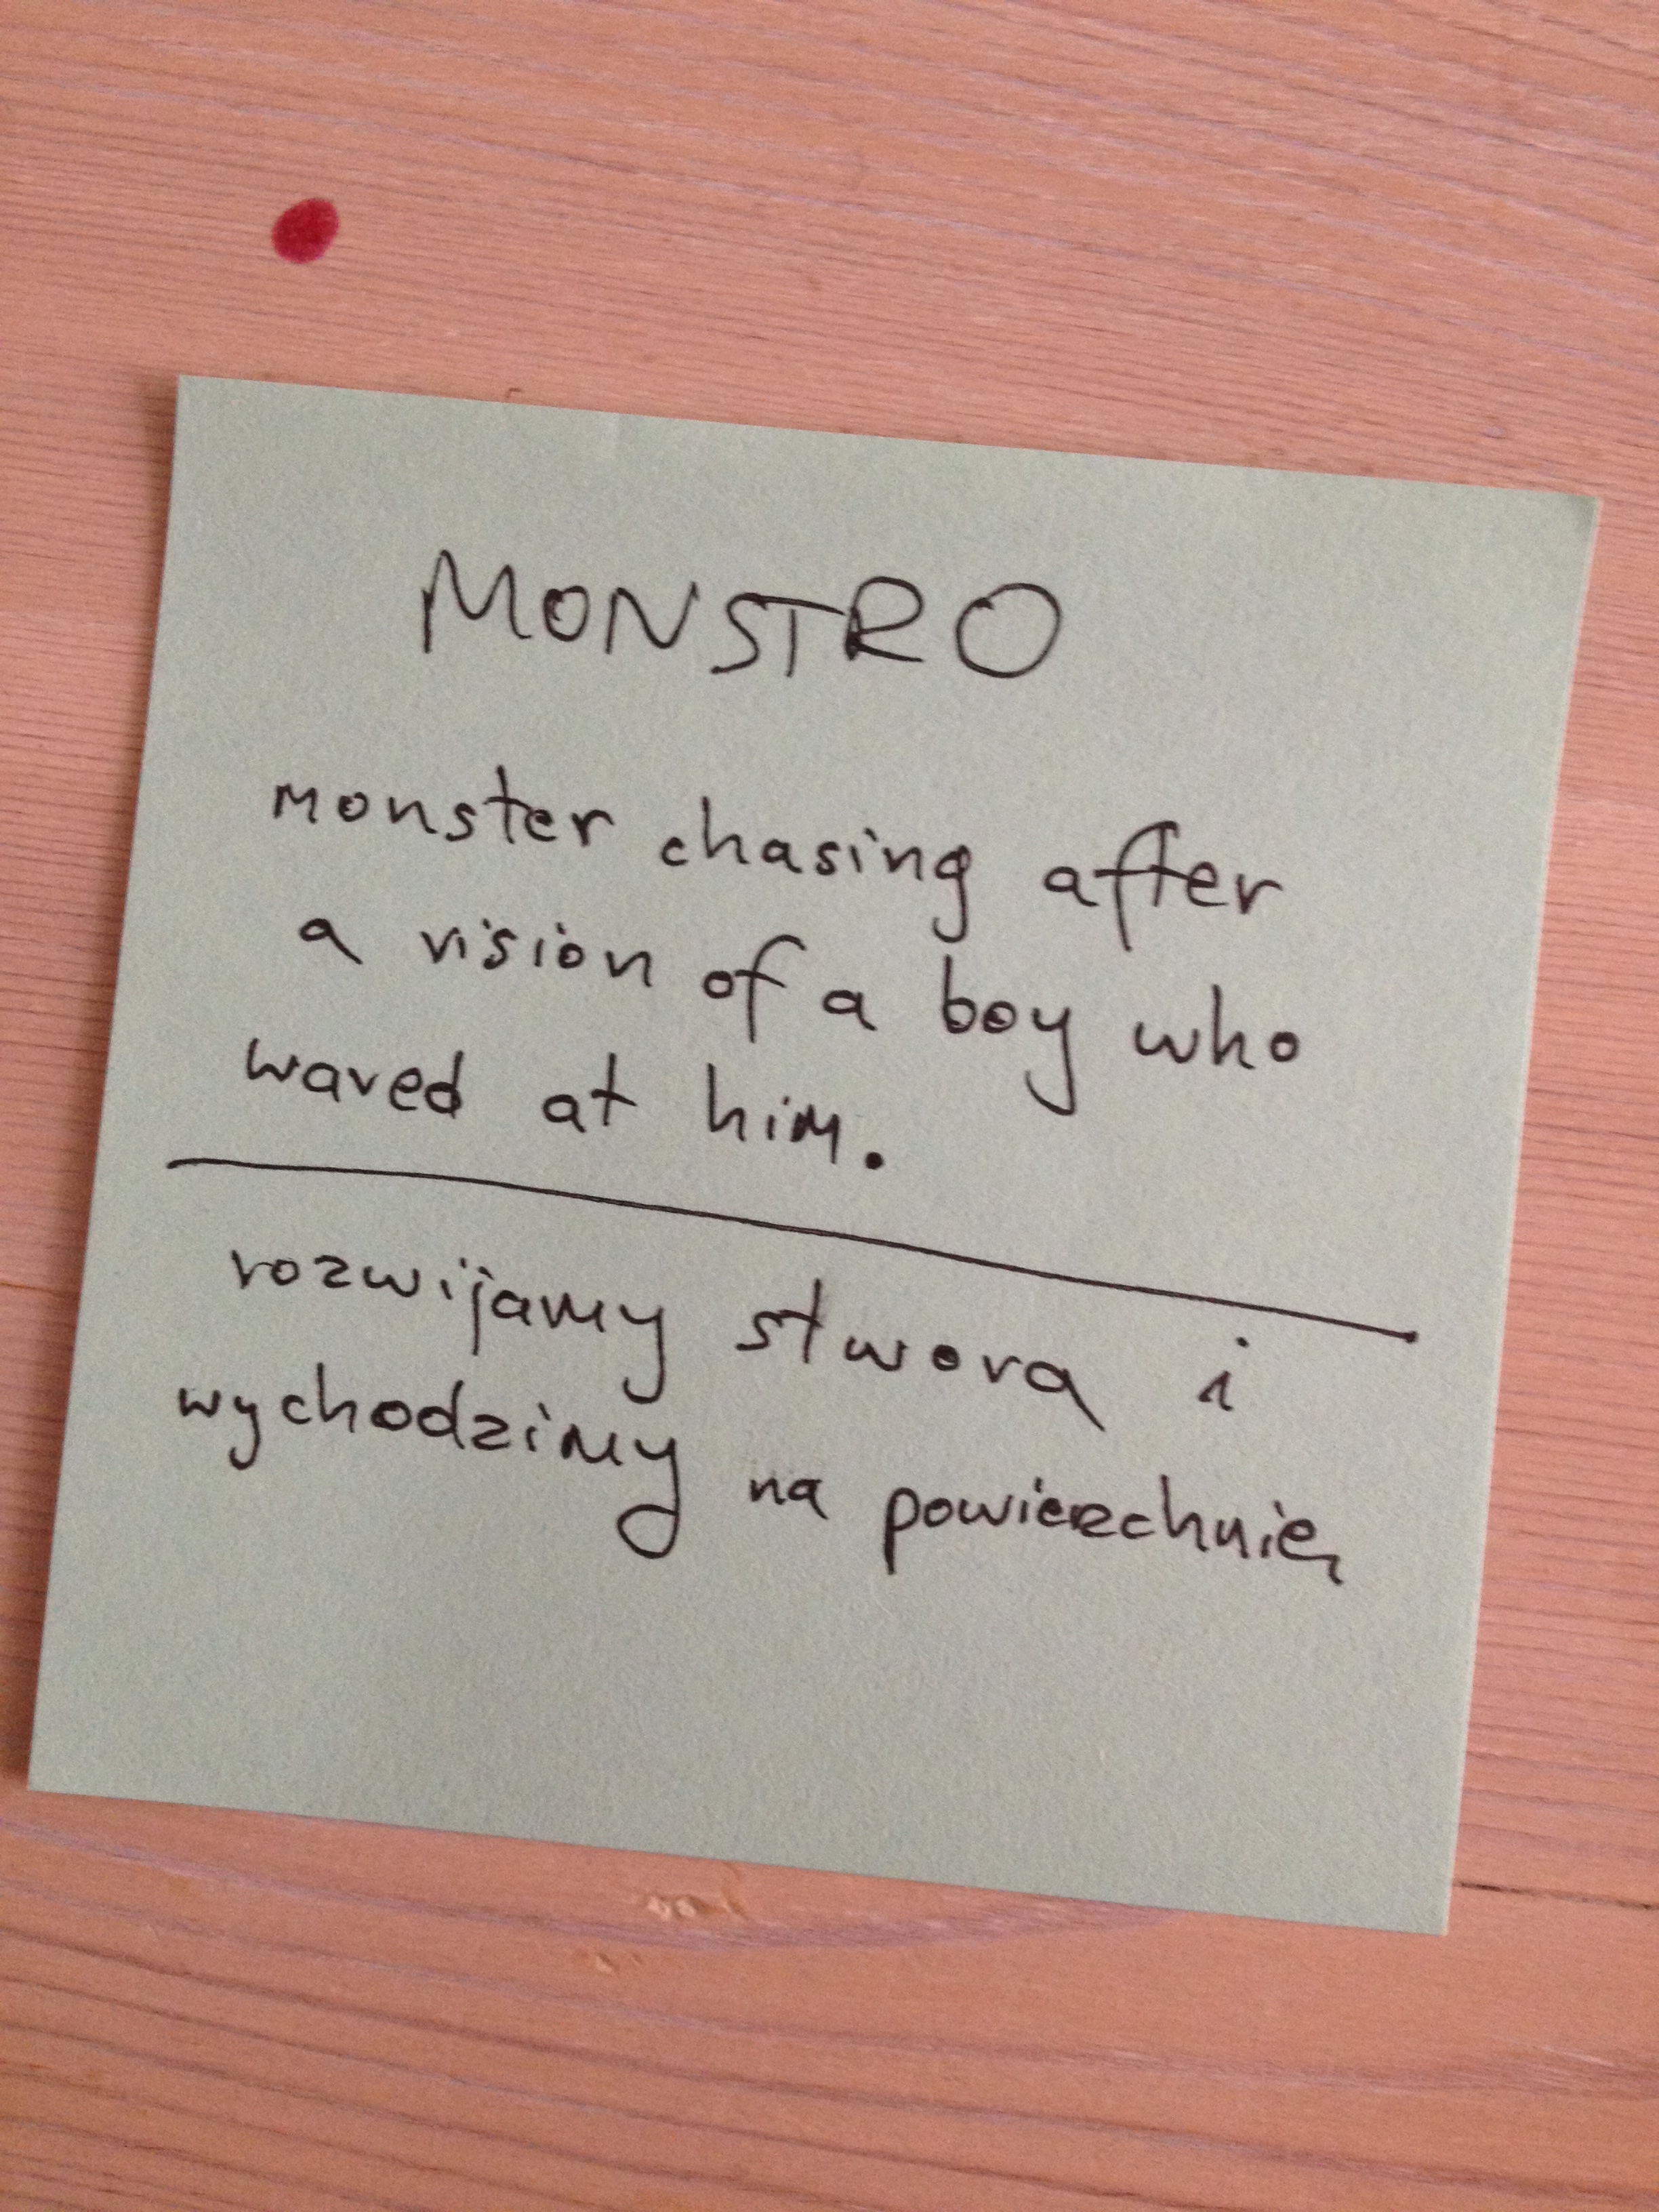 MONSTRO
monster chasing after
a vision of a boy who
waved at him.
rozwijamy stwora i
wychodzimy na powierzchnię